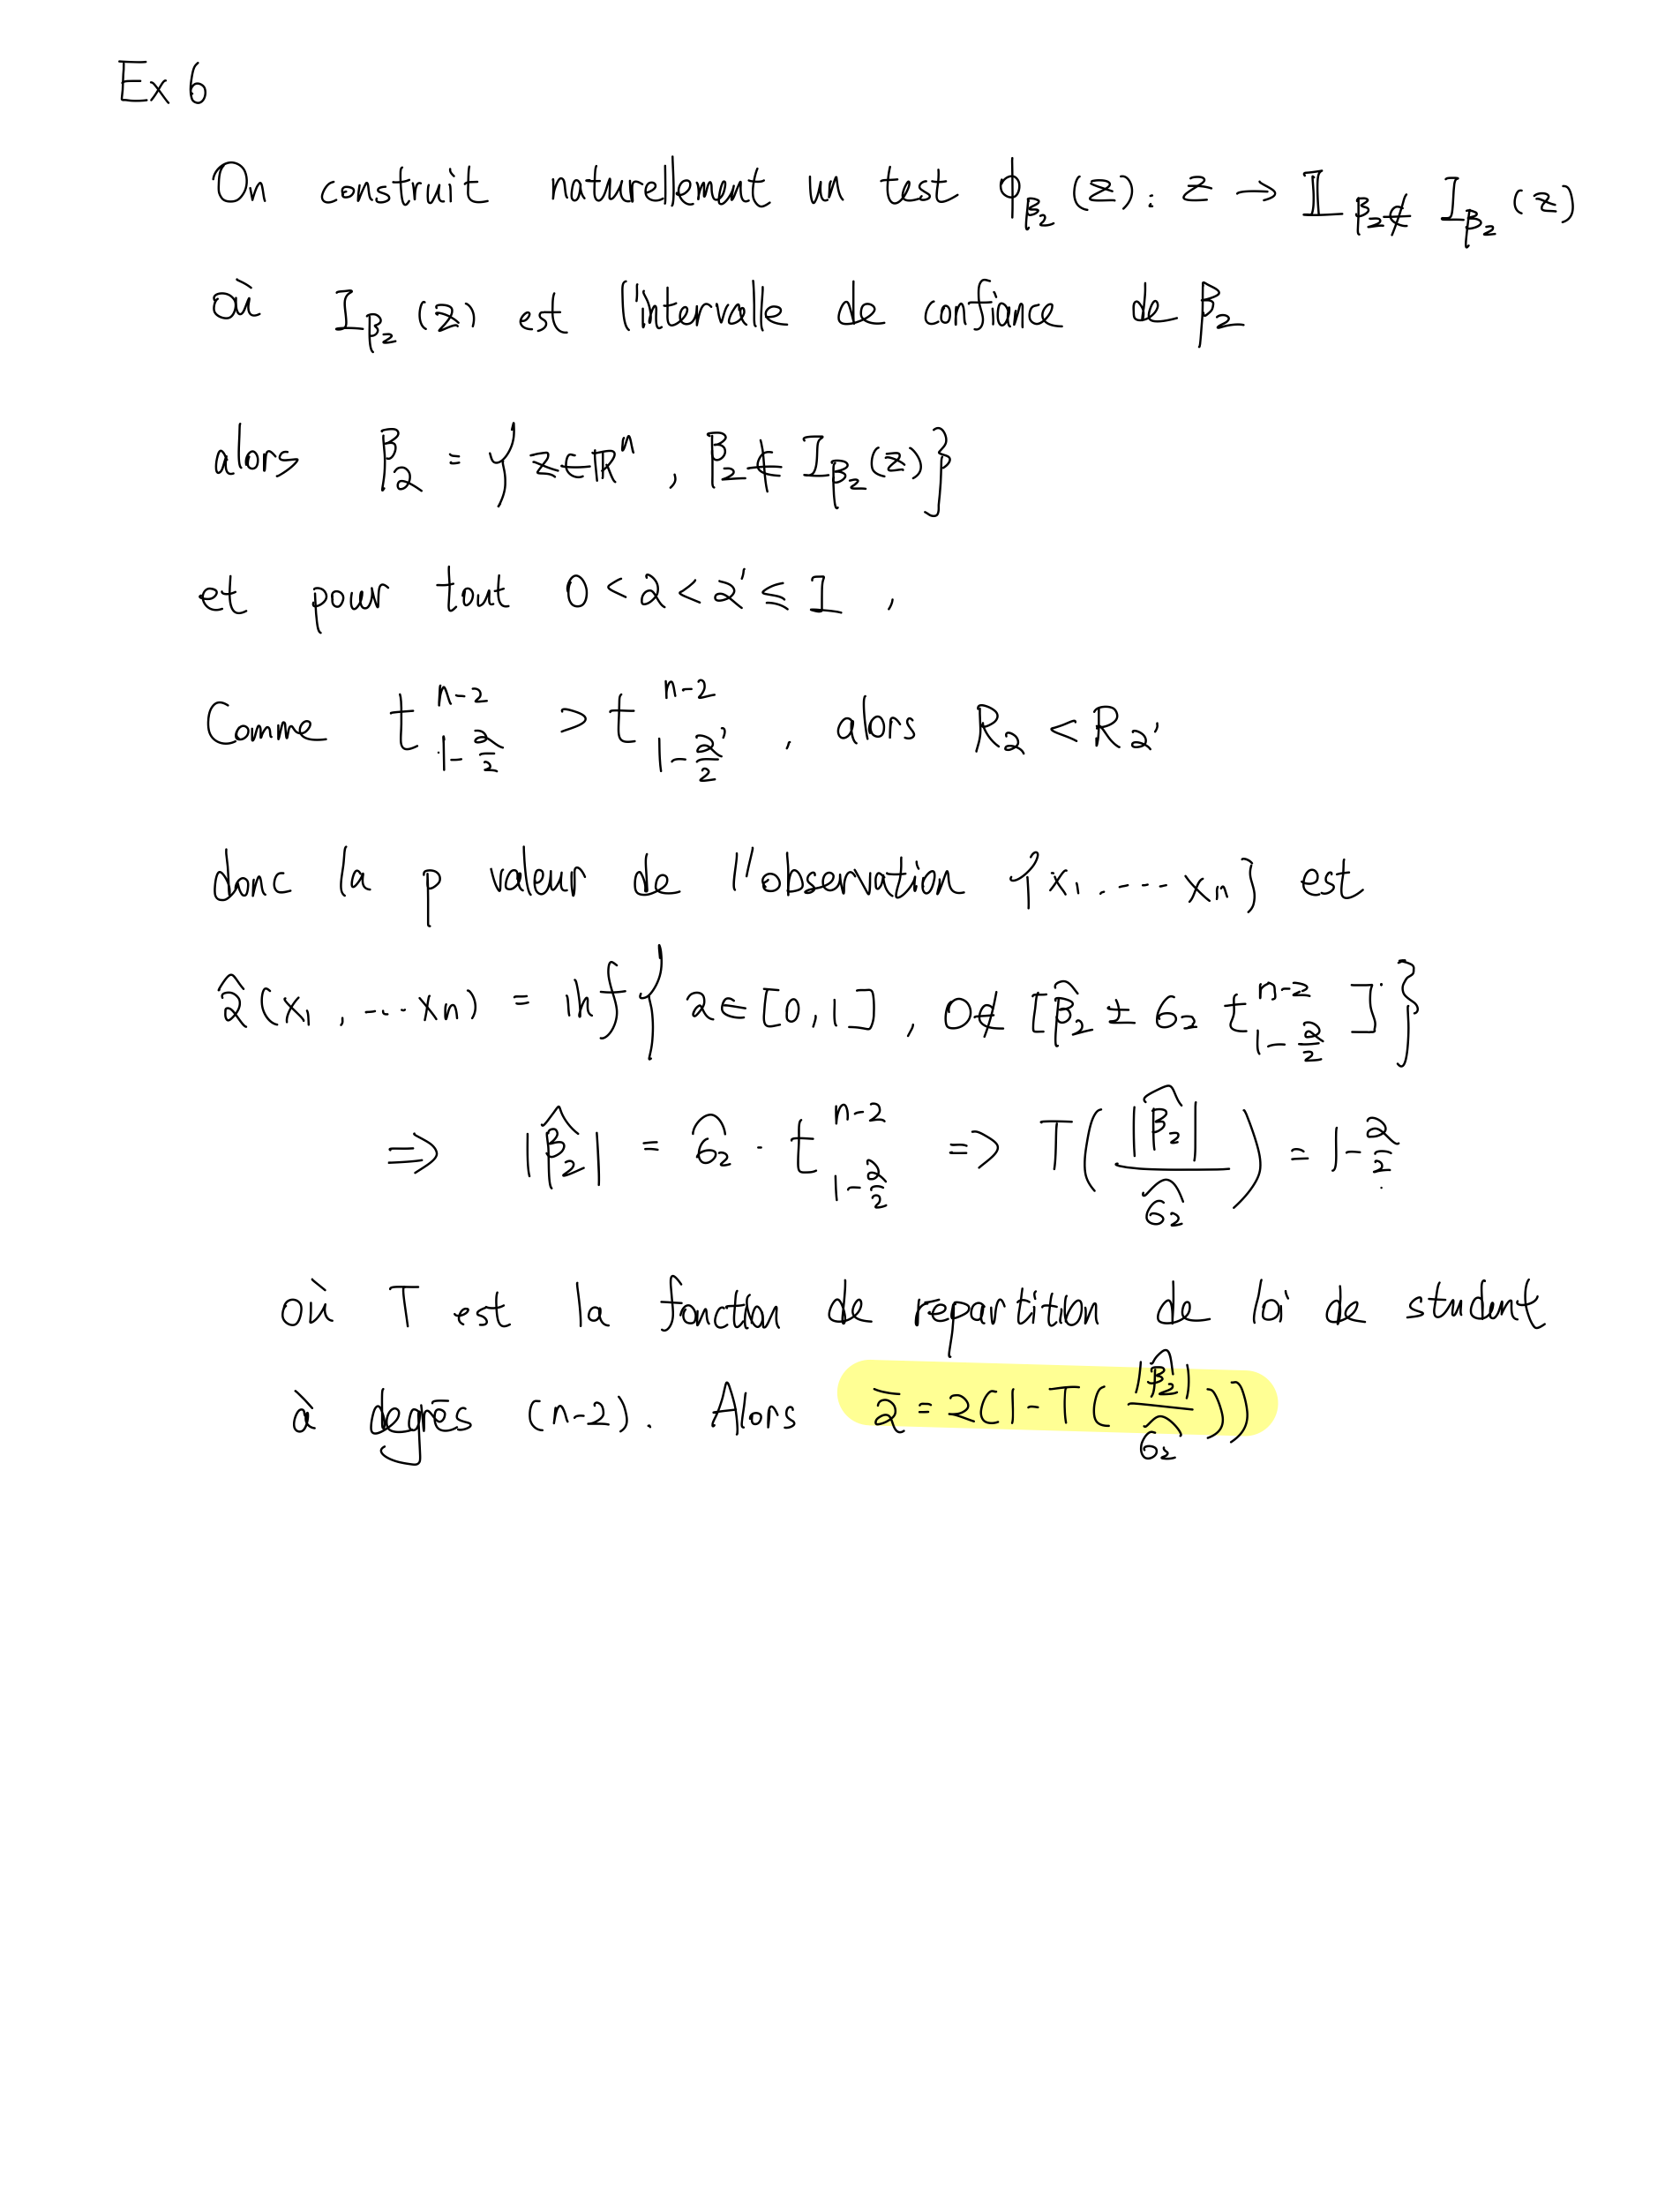 Ex 6
On construit naturellement un test ϕ_β₂ (z) : z → 𝟙 β₂∉ I_β₂ (z)
où I_β₂ (z) est l'intervalle de confiance de β₂
alors β₂ = { z∈ℝⁿ , β₂∉ I_β₂(z) }
et pour tout 0 < α < α' ≤ 1 ,
Comme t^{n-2}_{1-α/2} > t^{n-2}_{1-α'/2} , alors R_α < R_α'
donc la p valeur de l'observation {x₁, .... xₙ} est
α̂ (x₁ , ... xₙ) = inf { α ∈ [0,1] , 0∉ [β̂₂ ± σ₂ t^{n-2}_{1-α/2} ] }
⇒ |β̂₂| = σ̂₂ · t^{n-2}_{1-α/2} ⇒ T( |β̂₂| / σ̂₂ ) = 1-α/2
où T est la fonction de repartition de loi de student
à degrés (n-2). Alors ᾱ = 2(1-T( |β̂₂| / σ̂₂ ))